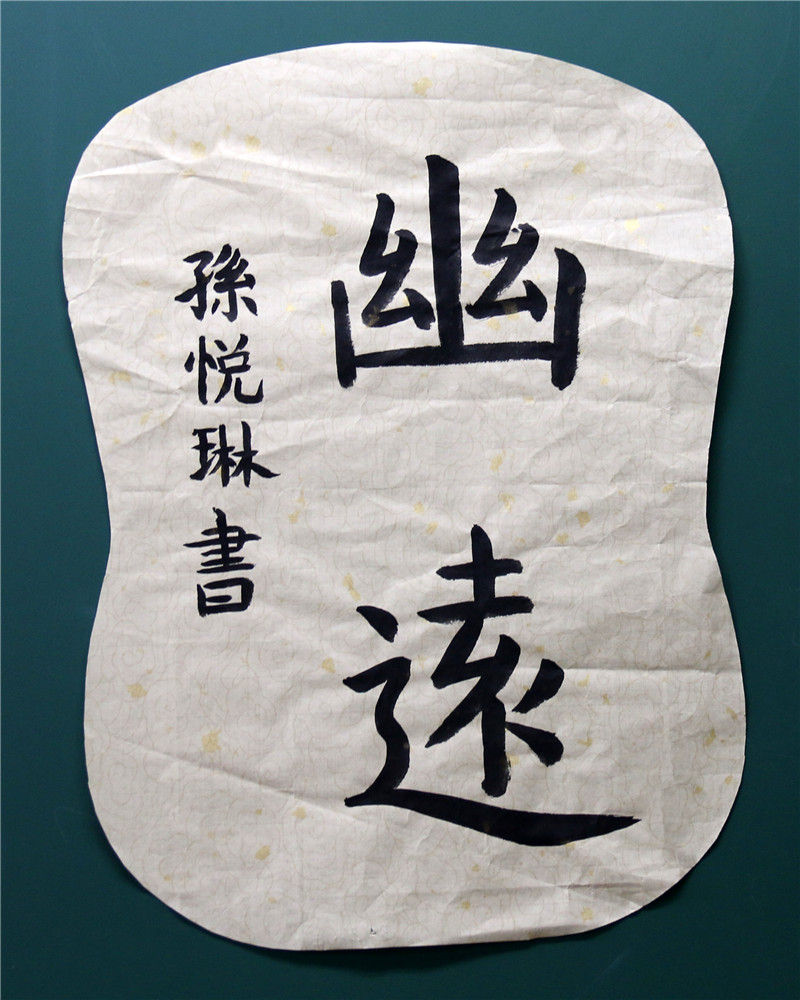 幽遠
孫悦琳書